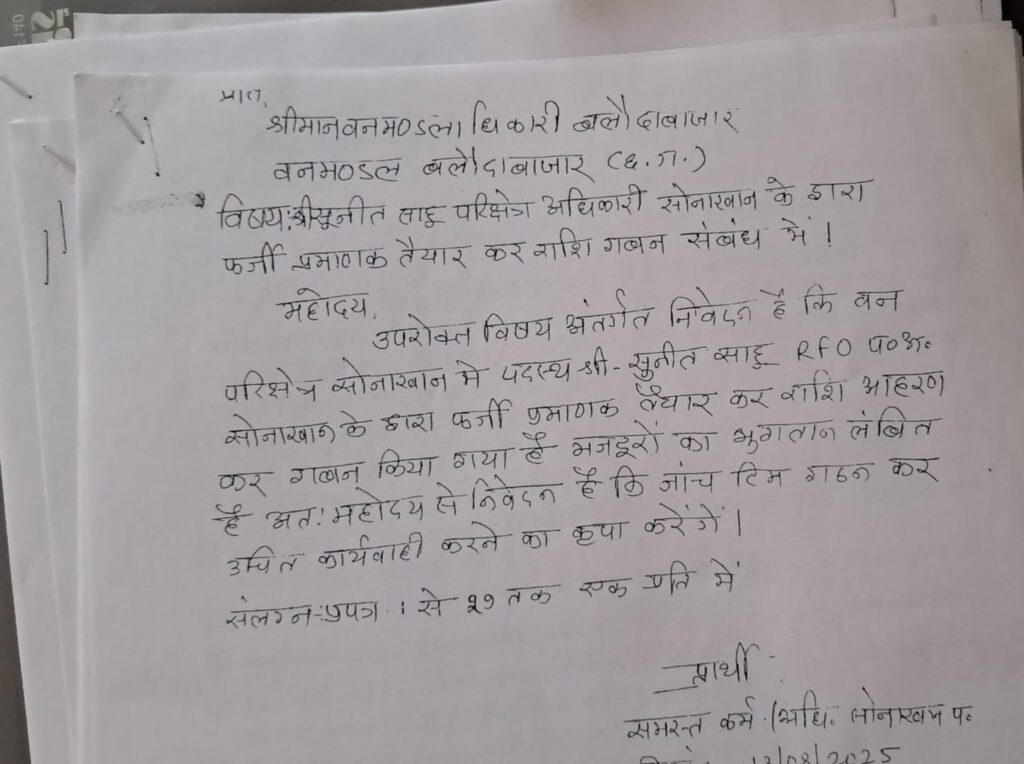 प्रति,
श्रीमान वनमण्डलाधिकारी बलौदाबाजार
वनमण्डल बलौदाबाजार (छ.ग.)
विषय:श्री सुनीत साहू परिक्षेत्र अधिकारी सोनाखान के द्वारा
फर्जी प्रमाणक तैयार कर राशि गबन संबंध में !
महोदय,
उपरोक्त विषय अंतर्गत निवेदन है कि वन
परिक्षेत्र सोनाखान मे पदस्थ श्री - सुनीत साहू RFO प०अ.
सोनाखान के द्वारा फर्जी प्रमाणक तैयार कर राशि आहरण
कर गबन किया गया है मजदूरों का भुगतान लंबित
है अत: महोदय से निवेदन है कि जांच टिम गठन कर
उचित कार्यवाही करने का कृपा करेंगें।
संलग्न-प्रपत्र 1 से 29 तक एक प्रति में
प्रार्थी
समस्त कर्म./अधि. सोनाखान प.
/08/2025